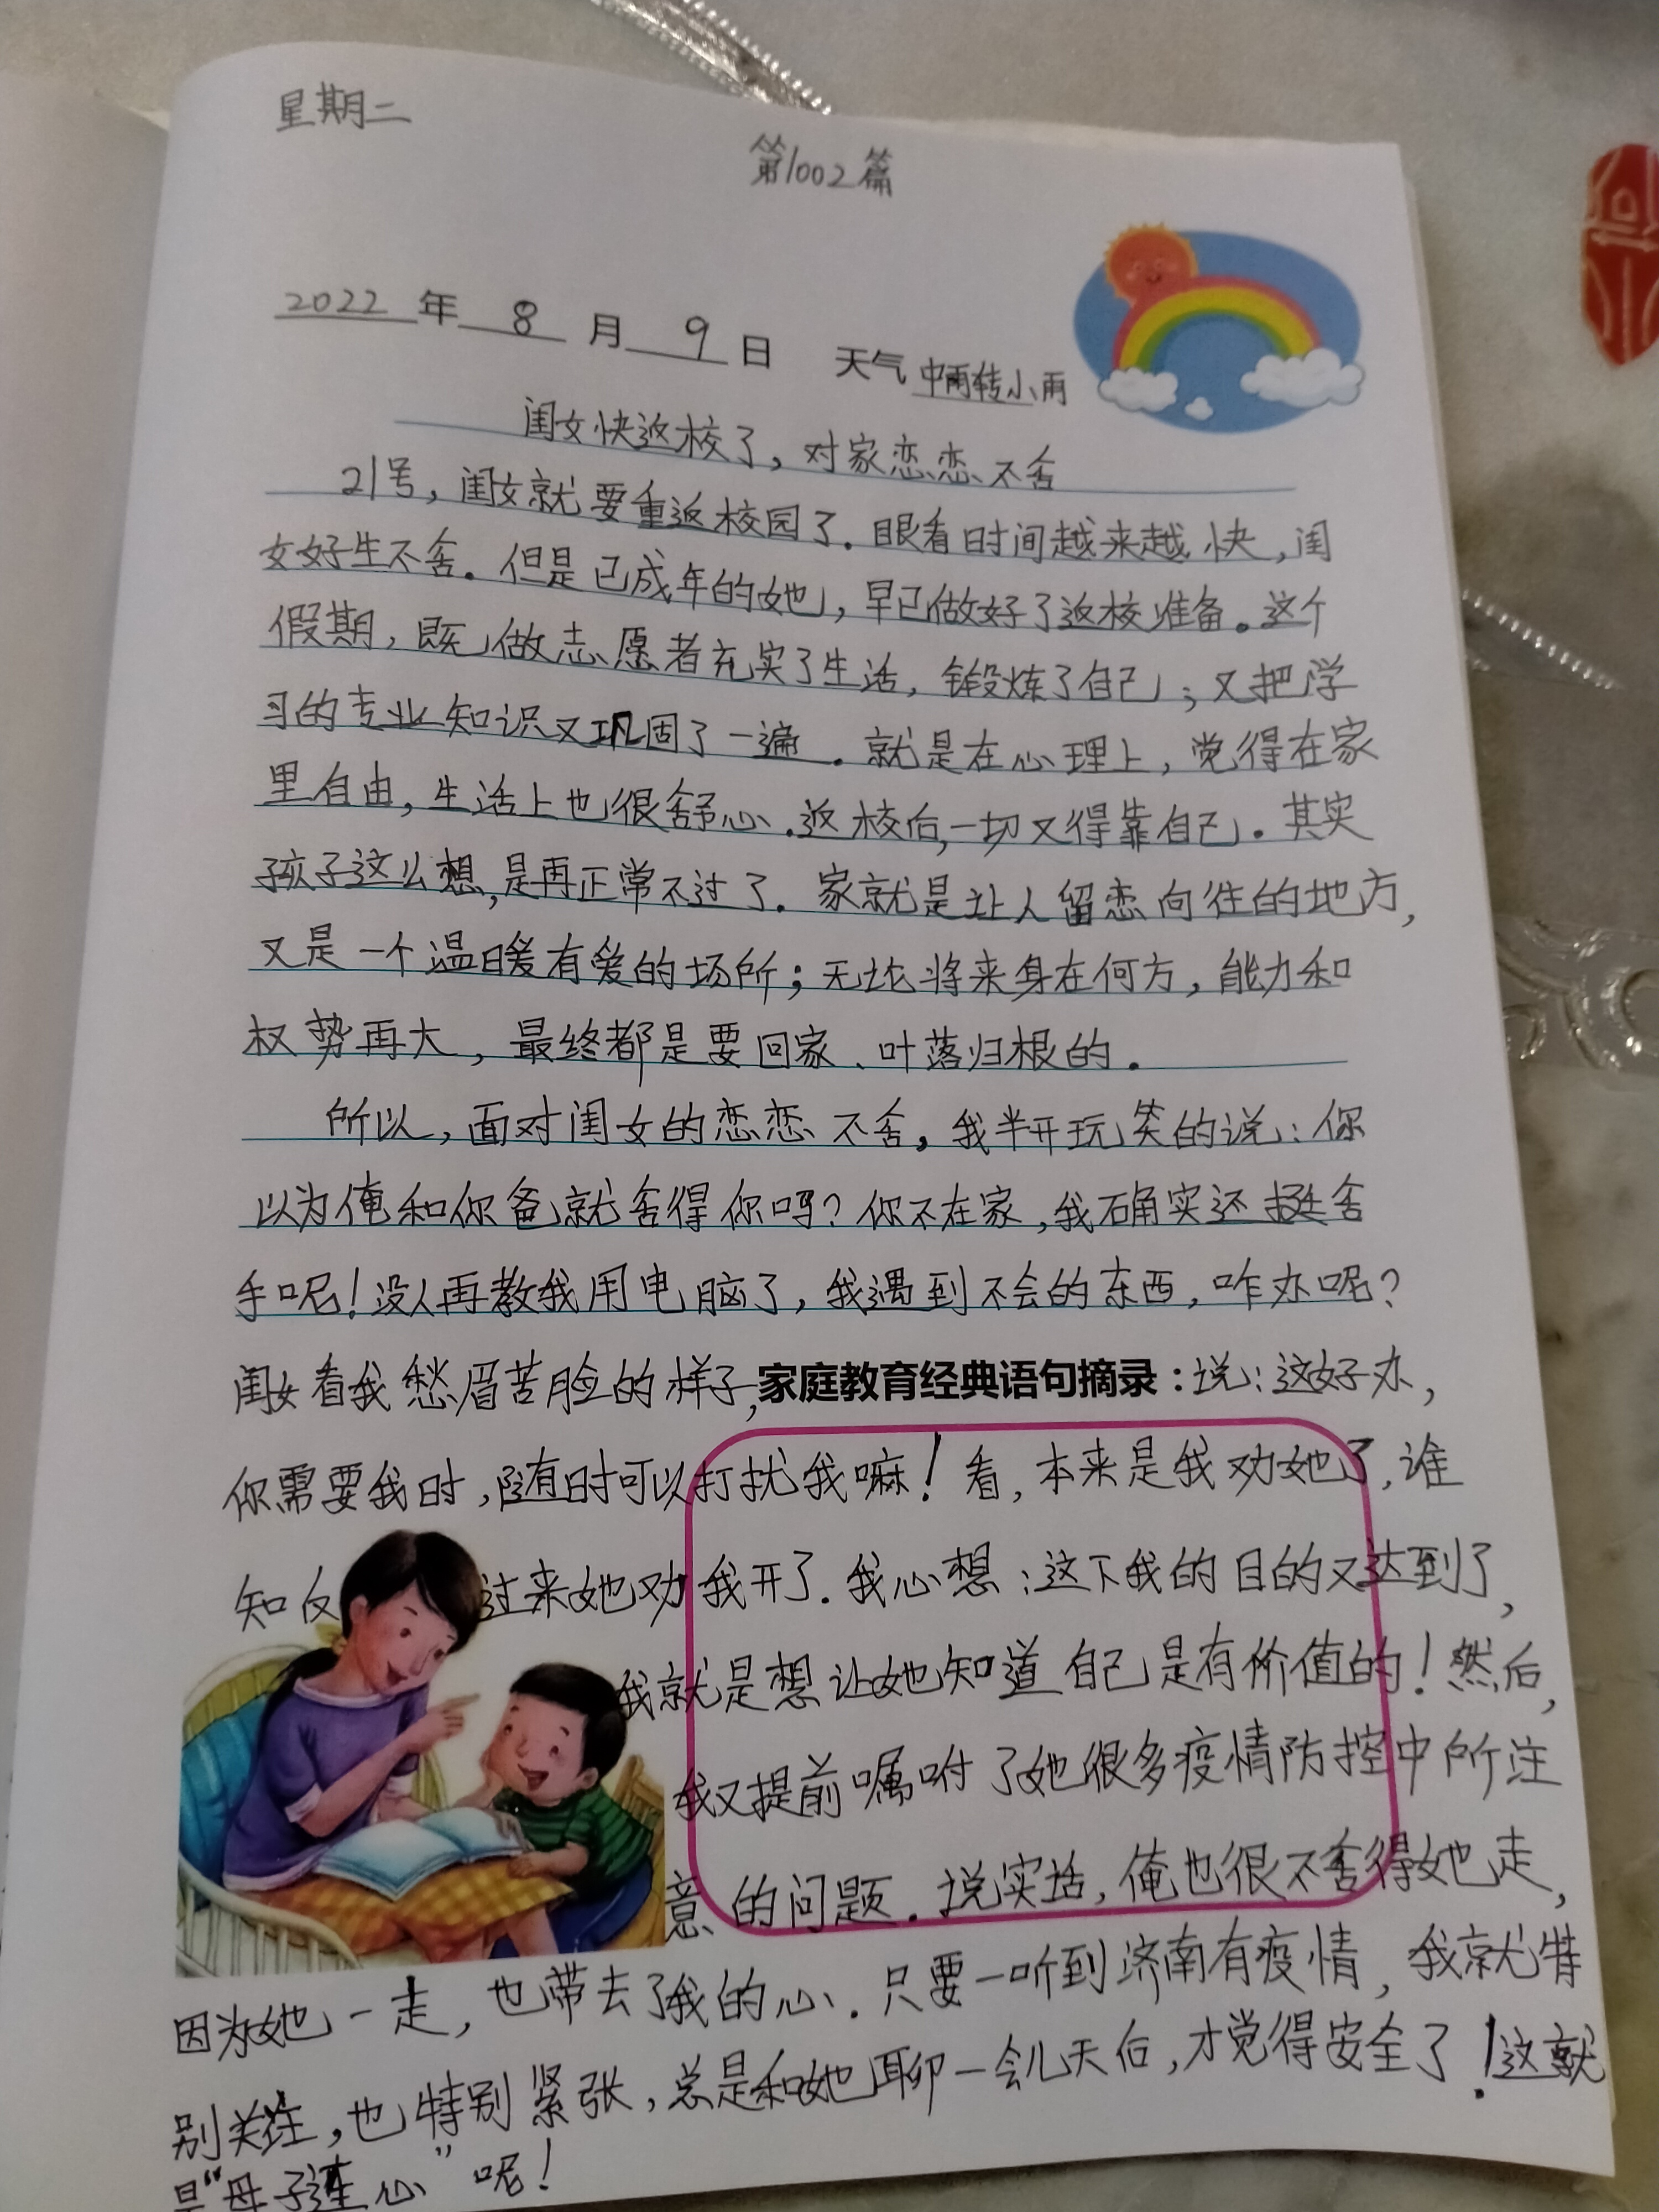 星期二
第1002篇
2022年8月9日 天气 中雨转小雨
闺女快返校了，对家恋恋不舍
21号，闺女就要重返校园了.眼看时间越来越快，闺
女好生不舍。但是已成年的她，早已做好了返校准备。这个
假期，既做志愿者充实了生活，锻炼了自己；又把学
习的专业知识又巩固了一遍.就是在心理上，觉得在家
里自由，生活上也很舒心.返校后，一切又得靠自己.其实
孩子这么想，是再正常不过了.家就是让人留恋向往的地方，
又是一个温暖有爱的场所；无论将来身在何方，能力和
权势再大，最终都是要回家、叶落归根的.
所以，面对闺女的恋恋不舍，我半开玩笑的说：你
以为俺和你爸就舍得你吗？你不在家，我确实还挺舍
手呢！没人再教我用电脑了，我遇到不会的东西，咋办呢？
闺女看我愁眉苦脸的样子，家庭教育经典语句摘录：说：这好办，
你需要我时，随时可以打扰我嘛！看，本来是我劝她了，谁
知反过来她劝我开了.我心想：这下我的目的又达到了，
我就是想让她知道自己是有价值的！然后，
我又提前嘱咐了她很多疫情防控中所注
意的问题.说实话，俺也很不舍得她走，
因为她一走，也带去了我的心.只要一听到济南有疫情，我就特
别关注，也特别紧张，总是和她聊一会儿天后，才觉得安全了！这就
是“母子连心”呢！